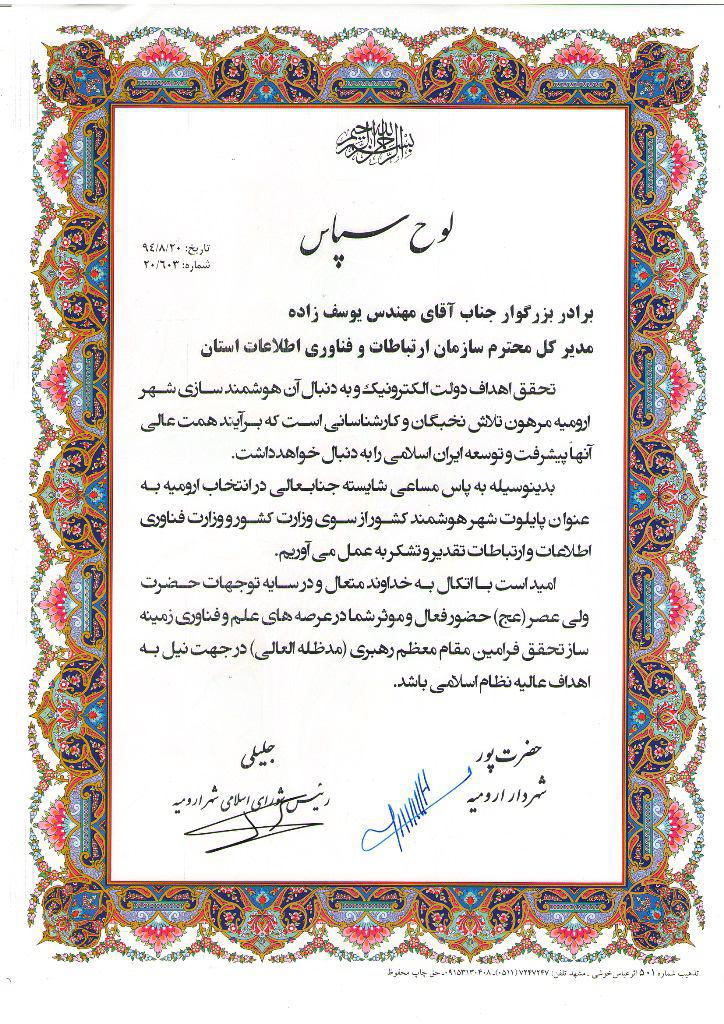 بسم الله الرحمن الرحیم
لوح سپاس
تاریخ: ۹٤/۸/۲۰
شماره: ۲۰/٦۰۳
برادر بزرگوار جناب آقای مهندس یوسف زاده
مدیر کل محترم سازمان ارتباطات و فناوری اطلاعات استان
تحقق اهداف دولت الکترونیک و به دنبال آن هوشمند سازی شهر
ارومیه مرهون تلاش نخبگان و کارشناسانی است که برآیند همت عالی
آنهاً پیشرفت و توسعه ایران اسلامی را به دنبال خواهد داشت.
بدینوسیله به پاس مساعی شایسته جنابعالی در انتخاب ارومیه به
عنوان پایلوت شهر هوشمند کشور از سوی وزارت کشور و وزارت فناوری
اطلاعات و ارتباطات تقدیر و تشکر به عمل می آوریم.
امید است با اتکال به خداوند متعال و در سایه توجهات حضرت
ولی عصر (عج) حضور فعال و موثر شما در عرصه های علم و فناوری زمینه
ساز تحقق فرامین مقام معظم رهبری (مدظله العالی) در جهت نیل به
اهداف عالیه نظام اسلامی باشد.
حضرت پور
شهردار ارومیه
جلیلی
رئیس شورای اسلامی شهر ارومیه
تذهیب شماره ۵۰۱ اثر عباس خوشی ـ مشهد تلفن: ۷۲۴۷۲۴۷ (۰۵۱۱) ـ ۰۹۱۵۳۱۳۰۴۰۸ ـ حق چاپ محفوظ